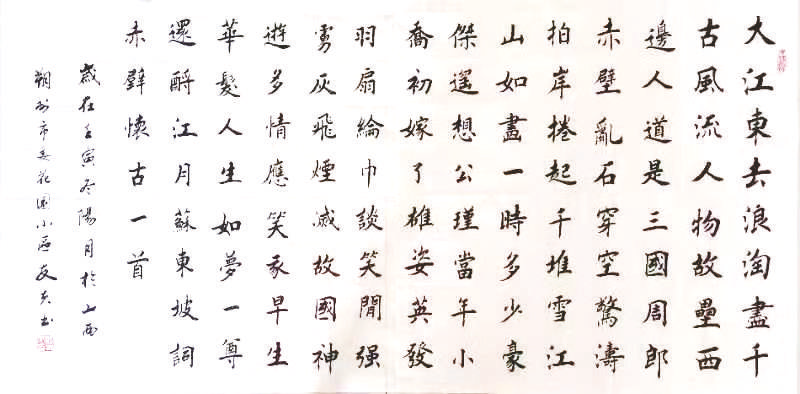 大江東去浪淘盡千
古風流人物故壘西
邊人道是三國周郎
赤壁亂石穿空驚濤
拍岸捲起千堆雪江
山如畫一時多少豪
傑遙想公瑾當年小
喬初嫁了雄姿英發
羽扇綸巾談笑間强
虜灰飛煙滅故國神
遊多情應笑我早生
華髮人生如夢一尊
還酹江月蘇東坡詞
赤壁懷古一首
歲在壬寅冬陽月於山西
朔州市委花園小區